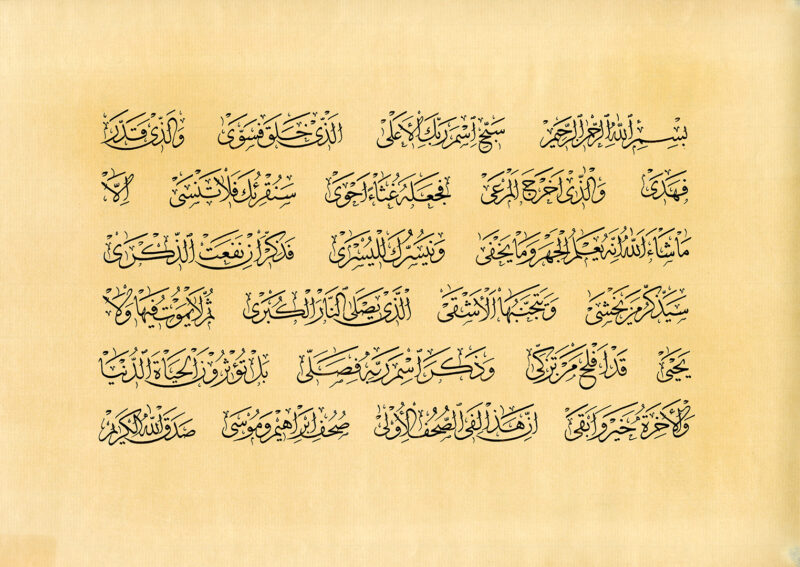 بسم الله الرحمن الرحيم سبح اسم ربك الأعلى الذي خلق فسوى والذي قدر
فهدى والذي أخرج المرعى فجعله غثاء أحوى سنقرئك فلا تنسى إلا
ما شاء الله إنه يعلم الجهر وما يخفى ونيسرك لليسرى فذكر إن نفعت الذكرى
سيذكر من يخشى ويتجنبها الأشقى الذي يصلى النار الكبرى ثم لا يموت فيها ولا
يحيى قد أفلح من تزكى وذكر اسم ربه فصلى بل تؤثرون الحياة الدنيا
والآخرة خير وأبقى إن هذا لفي الصحف الأولى صحف إبراهيم وموسى صدق الله الكريم